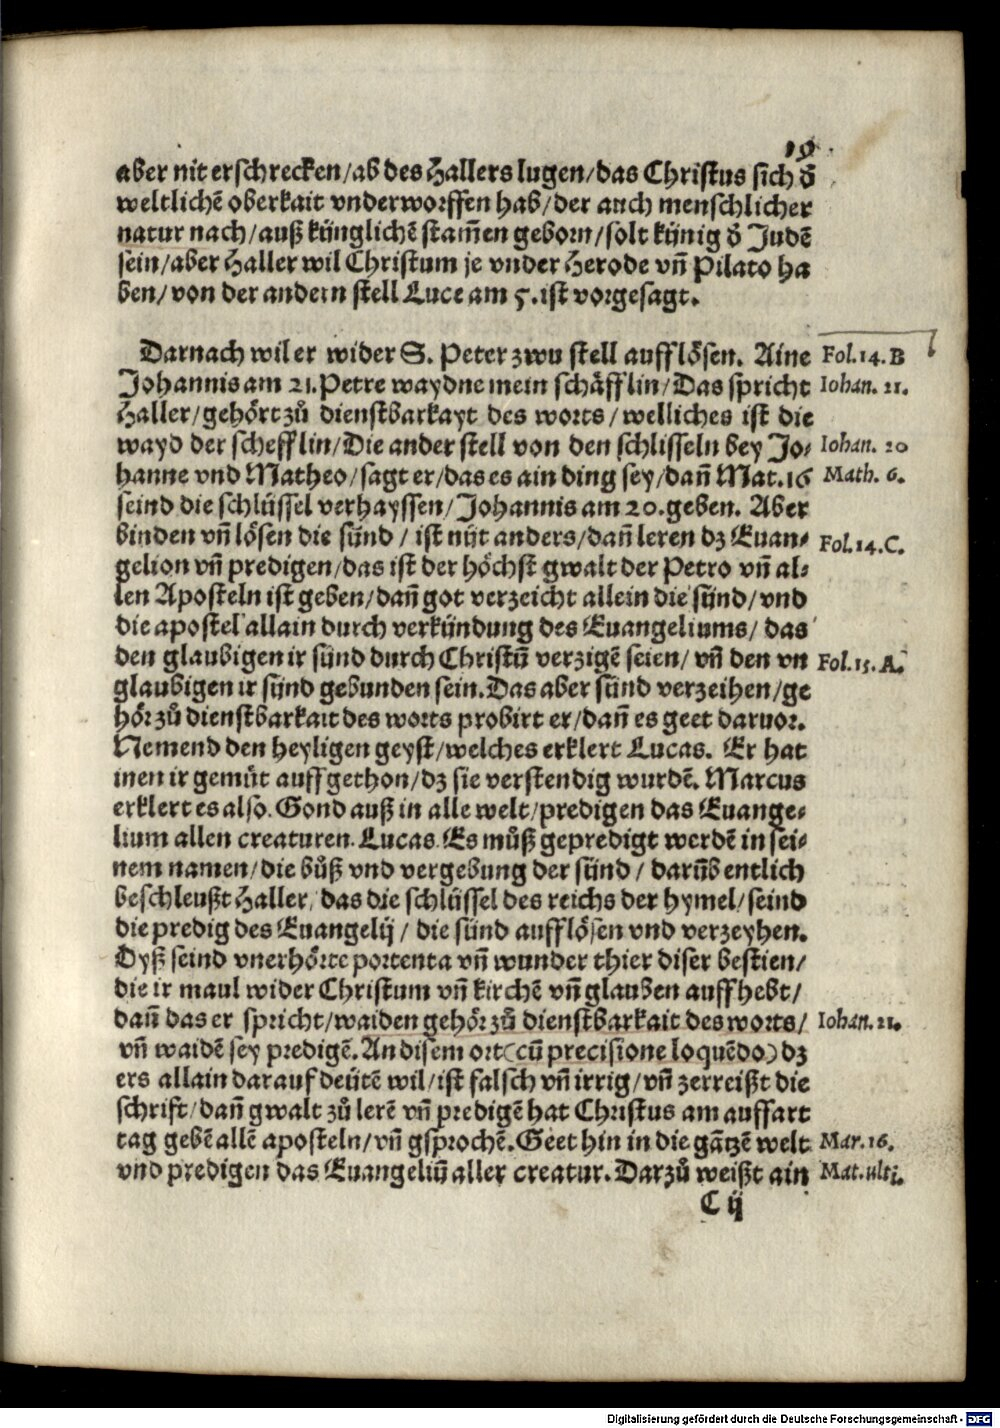 19
aber nit erschrecken/ab des Hallers lugen/das Christus sich d̄
weltlichē oberkait vnderworffen hab/der auch menschlicher
natur nach/auß künglichē stam̄en geborn/solt künig d̄ Judē
sein/aber Haller wil Christum je vnder Herode vn̄ Pilato ha
ben/von der andern stell Luce am 5.ist vorgesagt.
Darnach wil er wider S. Peter zwu stell aufflösen. Aine Fol.14.B
Johannis am 21.Petre waydne mein schäfflin/Das spricht Iohan. 21.
Haller/gehört zů dienstbarkayt des worts/welliches ist die
wayd der schefflin/Die ander stell von den schlisseln bey Jo⸗ Iohan. 20
hanne vnd Matheo/sagt er/das es ain ding sey/dan̄ Mat.16 Math. 6.
seind die schlüssel verhayssen/Johannis am 20.geben. Aber
binden vn̄ lösen die sünd/ist nüt anders/dan̄ leren dz Euan⸗ Fol.14.C.
gelion vn̄ predigen/das ist der höchst gwalt der Petro vn̄ al⸗
len Aposteln ist geben/dan̄ got verzeicht allein die sünd/vnd
die apostel allain durch verkündung des Euangeliums/das
den glaubigen ir sünd durch Christū verzigē seien/vn̄ den vn Fol.15.A.
glaubigen ir sünd gebunden sein.Das aber sünd verzeihen/ge
hör zů dienstbarkait des worts probirt er/dan̄ es geet daruor.
Nemend den heyligen geyst/welches erklert Lucas. Er hat
inen ir gemüt auffgethon/dz sie verstendig wurdē. Marcus
erklert es also. Gond auß in alle welt/predigen das Euange⸗
lium allen creaturen. Lucas. Es můß gepredigt werdē in sei⸗
nem namen/die bůß vnd vergebung der sünd/darūb entlich
beschleußt Haller, das die schlüssel des reichs der hymel/seind
die predig des Euangelij/die sünd aufflösen vnd verzeyhen.
Dyß seind vnerhörte portenta vn̄ wunder thier diser bestien/
die ir maul wider Christum vn̄ kirchē vn̄ glauben auffhebt/
dan̄ das er spricht/waiden gehör zů dienstbarkait des worts/ Iohan. 21.
vn̄ waidē sey predigē. An disem ort(cū precisione loquēdo)dz
ers allain darauf deütē wil/ist falsch vn̄ irrig/vn̄ zerreißt die
schrift/dan̄ gwalt zů lerē vn̄ predigē hat Christus am auffart
tag gebē allē aposteln/vn̄ gsprochē. Geet hin in die gātzē welt Mar. 16.
vnd predigen das Euangeliū aller creatur. Darzů weißt ain Mat.ulti.
C ij
Digitalisierung gefördert durch die Deutsche Forschungsgemeinschaft - DFG